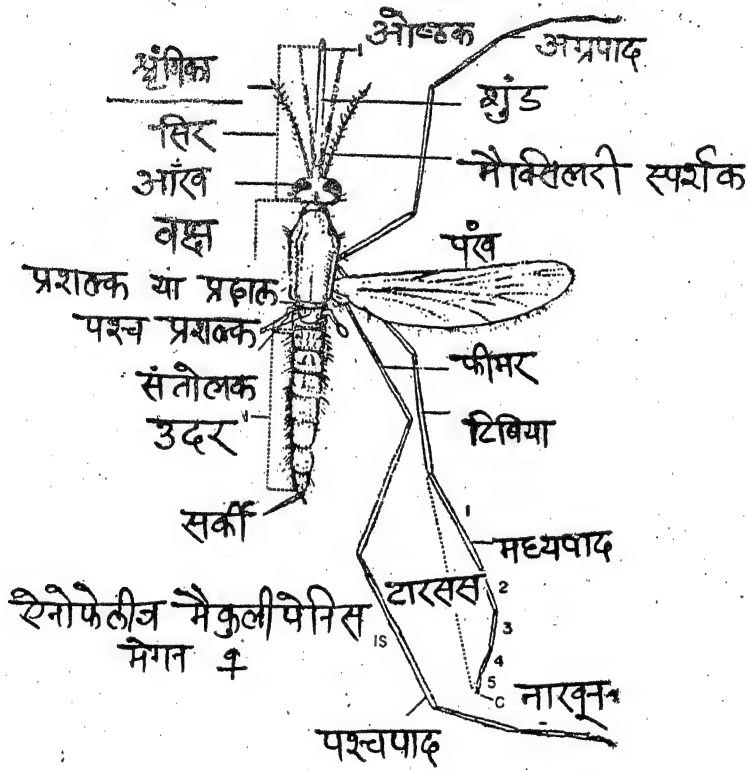 ओष्ठक
अग्रपाद
श्रृंगिका
शुंड
सिर
मैक्सिलरी स्पर्शक
आँख
वक्ष
पंख
प्रशल्क या प्रद्राल
पश्च प्रशल्क
फीमर
संतोलक
टिबिया
उदर
सर्की
मध्यपाद
टारसस
2
3
4
5
C नाखून
ऐनोफेलीज मैकुलीपेनिस
मेगन ♀
IS
पश्चपाद